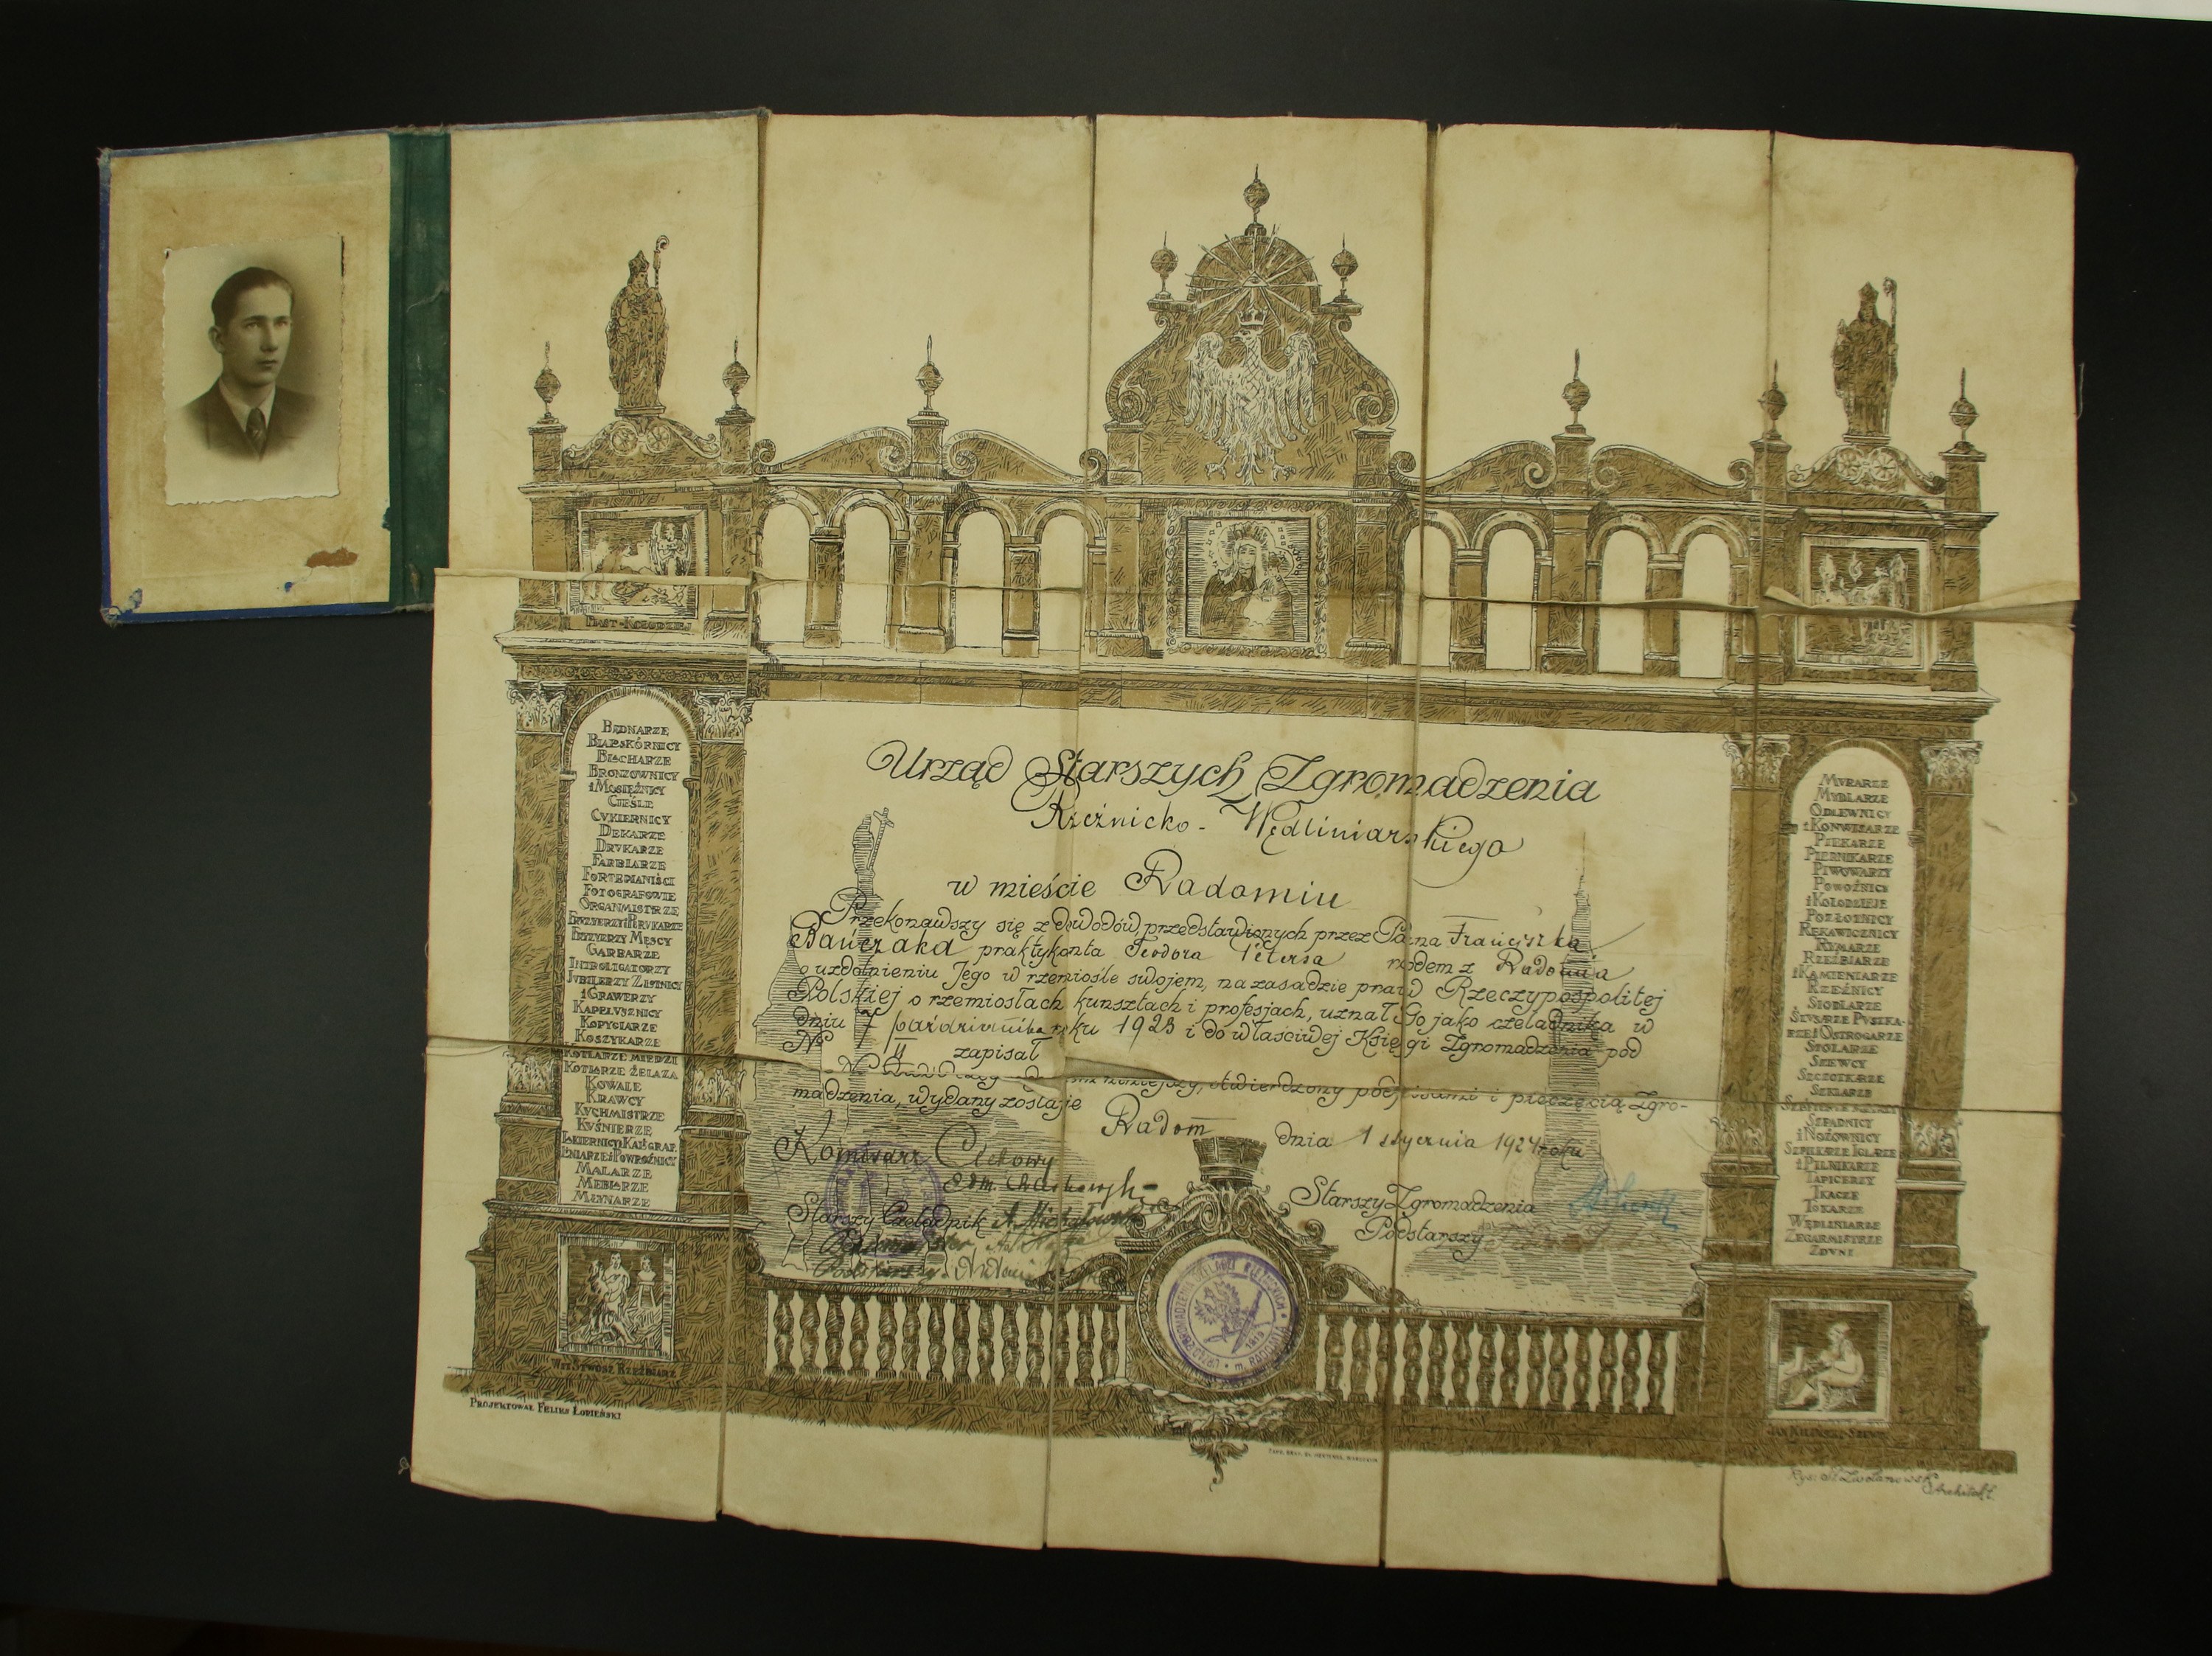 PIAST-KOŁODZIEJ
BEDNARZE
BIAŁSKÓRNICY
BLACHARZE
BRONZOWNICY
i MOSIĘŻNICY
CIEŚLE
CUKIERNICY
DEKARZE
DRUKARZE
FARBIARZE
FORTEPIANIŚCI
FOTOGRAFOWIE
ORGANMISTRZE
FRYZJERZY i PERUKARZE
FRYZJERZY MĘSCY
GARBARZE
INTROLIGATORZY
JUBILERZY ZŁOTNICY
i GRAWERZY
KAPELUSZNICY
KOPYCIARZE
KOSZYKARZE
KOTLARZE MIEDZI
KOTLARZE ŻELAZA
KOWALE
KRAWCY
KUCHMISTRZE
KUŚNIERZE
LAKIERNICY i KALIGRAF.
LINIARZE i POWROŹNICY
MALARZE
MEBLARZE
MŁYNARZE
WIT STWOSZ RZEŹBIARZ
PROJEKTOWAŁ FELIKS ŁOPIEŃSKI
Urząd Starszych Zgromadzenia
Rzeźnicko - Wędliniarskiego
w mieście Radomiu
Przekonawszy się z dowodów, przedstawionych przez Pana Franciszka
Bańczaka praktykanta Teodora Petersa rodem z Radomia
o uzdolnieniu Jego w rzemiośle swojem, na zasadzie praw Rzeczypospolitej
Polskiej o rzemiosłach kunsztach i profesjach, uznał Go jako czeladnika w
dniu 7 października roku 1923 i do właściwej Księgi Zgromadzenia pod
№ 11 zapisał
niniejszy, stwierdzony podpisami i pieczęcią Zgro-
madzenia, wydany zostaje
Radom dnia 1 stycznia 1924 roku
Komisarz Cechowy
Edm.
Starszy Czeladnik A. Michałowski
Starszy Zgromadzenia
Podstarszy
ZGROMADZENIE
m. RADOMIU
1919
MURARZE
MYDLARZE
ODLEWNICY
i KONWISARZE
PIEKARZE
PIERNIKARZE
PIWOWARZY
POWOŹNICY
i KOŁODZIEJE
POZŁOTNICY
RĘKAWICZNICY
RYMARZE
RZEŹBIARZE
i KAMIENIARZE
RZEŹNICY
SIODLARZE
ŚLUSARZE PUSZKA-
RZE i OSTROGARZE
STOLARZE
SZEWCY
SZCZOTKARZE
SZKLARZE
SZPADNICY
i NOŻOWNICY
SZPILKARZE IGLARZE
i PILNIKARZE
TAPICERZY
TKACZE
TOKARZE
WĘDLINIARZE
ZEGARMISTRZE
ZDUNI
JAN KILIŃSKI, SZEWC
Rys. St. Zwolanowski
Architekt.